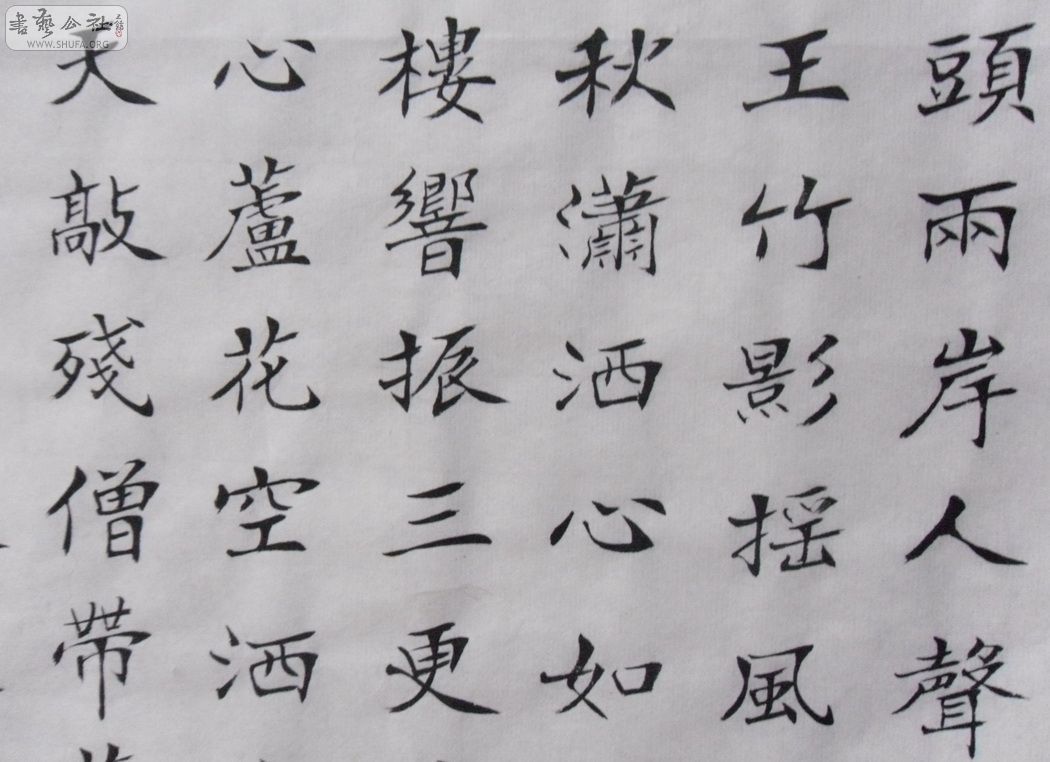 頭兩岸人聲
王竹影摇風
秋瀟洒心如
樓響振三更
心蘆花空洒
天敲殘僧帶
書藝公社
WWW.SHUFA.ORG